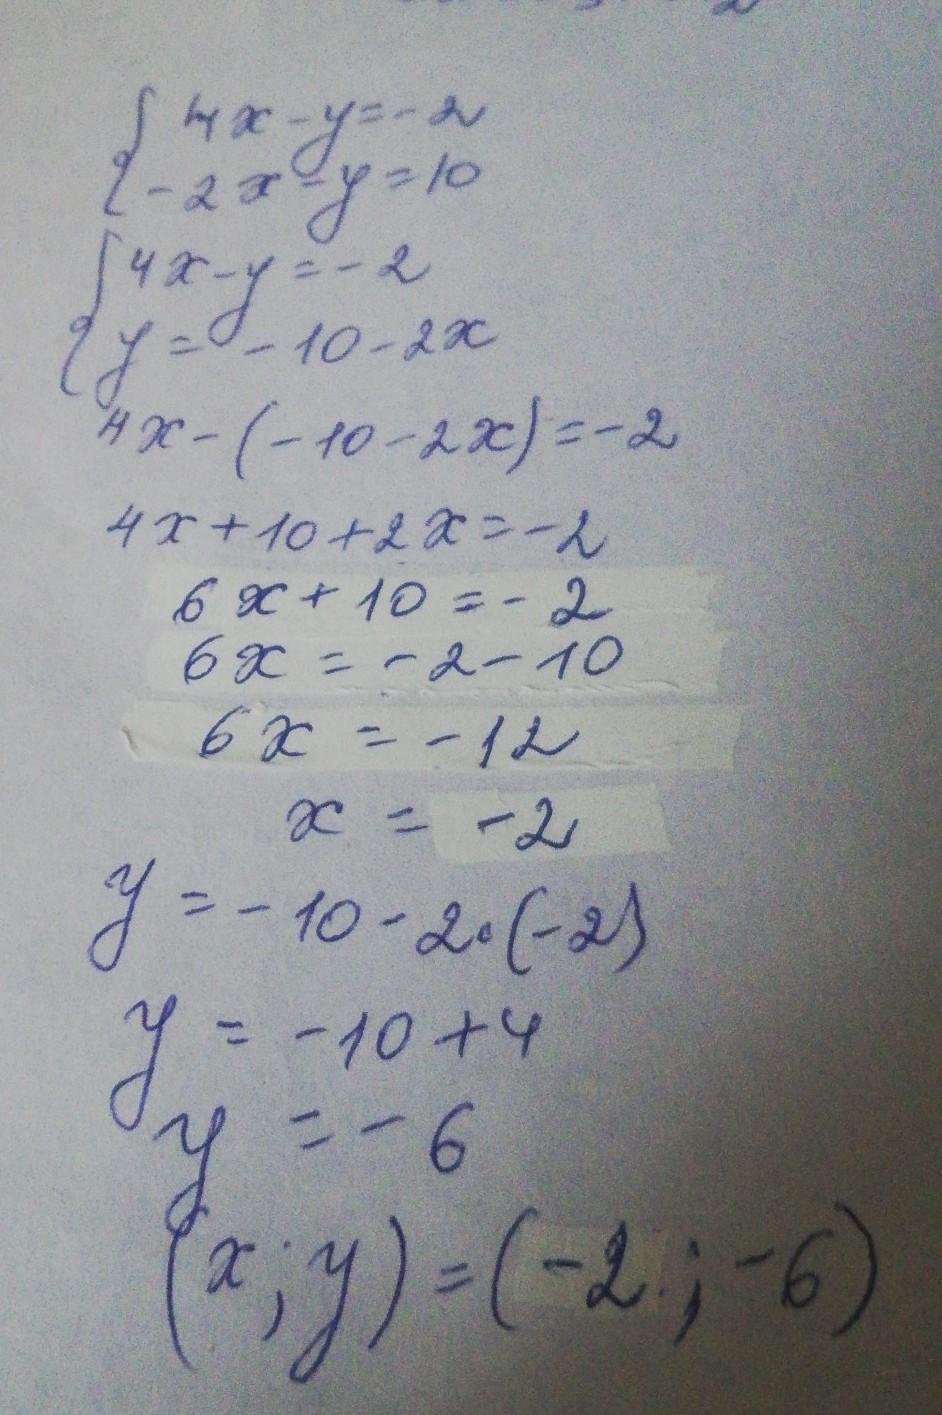 { 4x - y = - 2
{ - 2x - y = 10
{ 4x - y = - 2
{ y = - 10 - 2x
4x - ( - 10 - 2x ) = - 2
4x + 10 + 2x = - 2
6x + 10 = - 2
6x = - 2 - 10
6x = - 12
x = - 2
y = - 10 - 2 · ( - 2 )
y = - 10 + 4
y = - 6
( x ; y ) = ( - 2 ; - 6 )